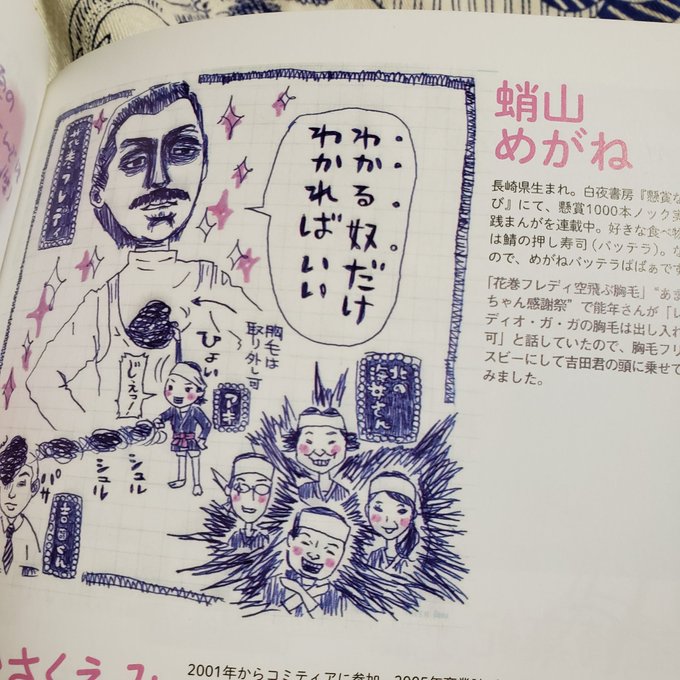 蛸山
めがね
長崎県生まれ。白夜書房『懸賞な
び』にて、懸賞1000本ノック実
践まんがを連載中。好きな食べ物
は鯖の押し寿司(バッテラ)。な
ので、めがねバッテラばばぁです
「花巻フレディ空飛ぶ胸毛」“あま
ちゃん感謝祭”で能年さんが「レ
ディオ・ガ・ガの胸毛は出し入れ
可」と話していたので、胸毛フリ
スピーにして吉田君の頭に乗せて
みました。
わかる奴だけ
わかればいい
花巻フレディ
胸毛は
取り外し可
ひょい
じぇっ!
アキ
北の海女さん
シュル
シュル
パサ
吉田くん
2001年からコミティアに参加。2005年商業